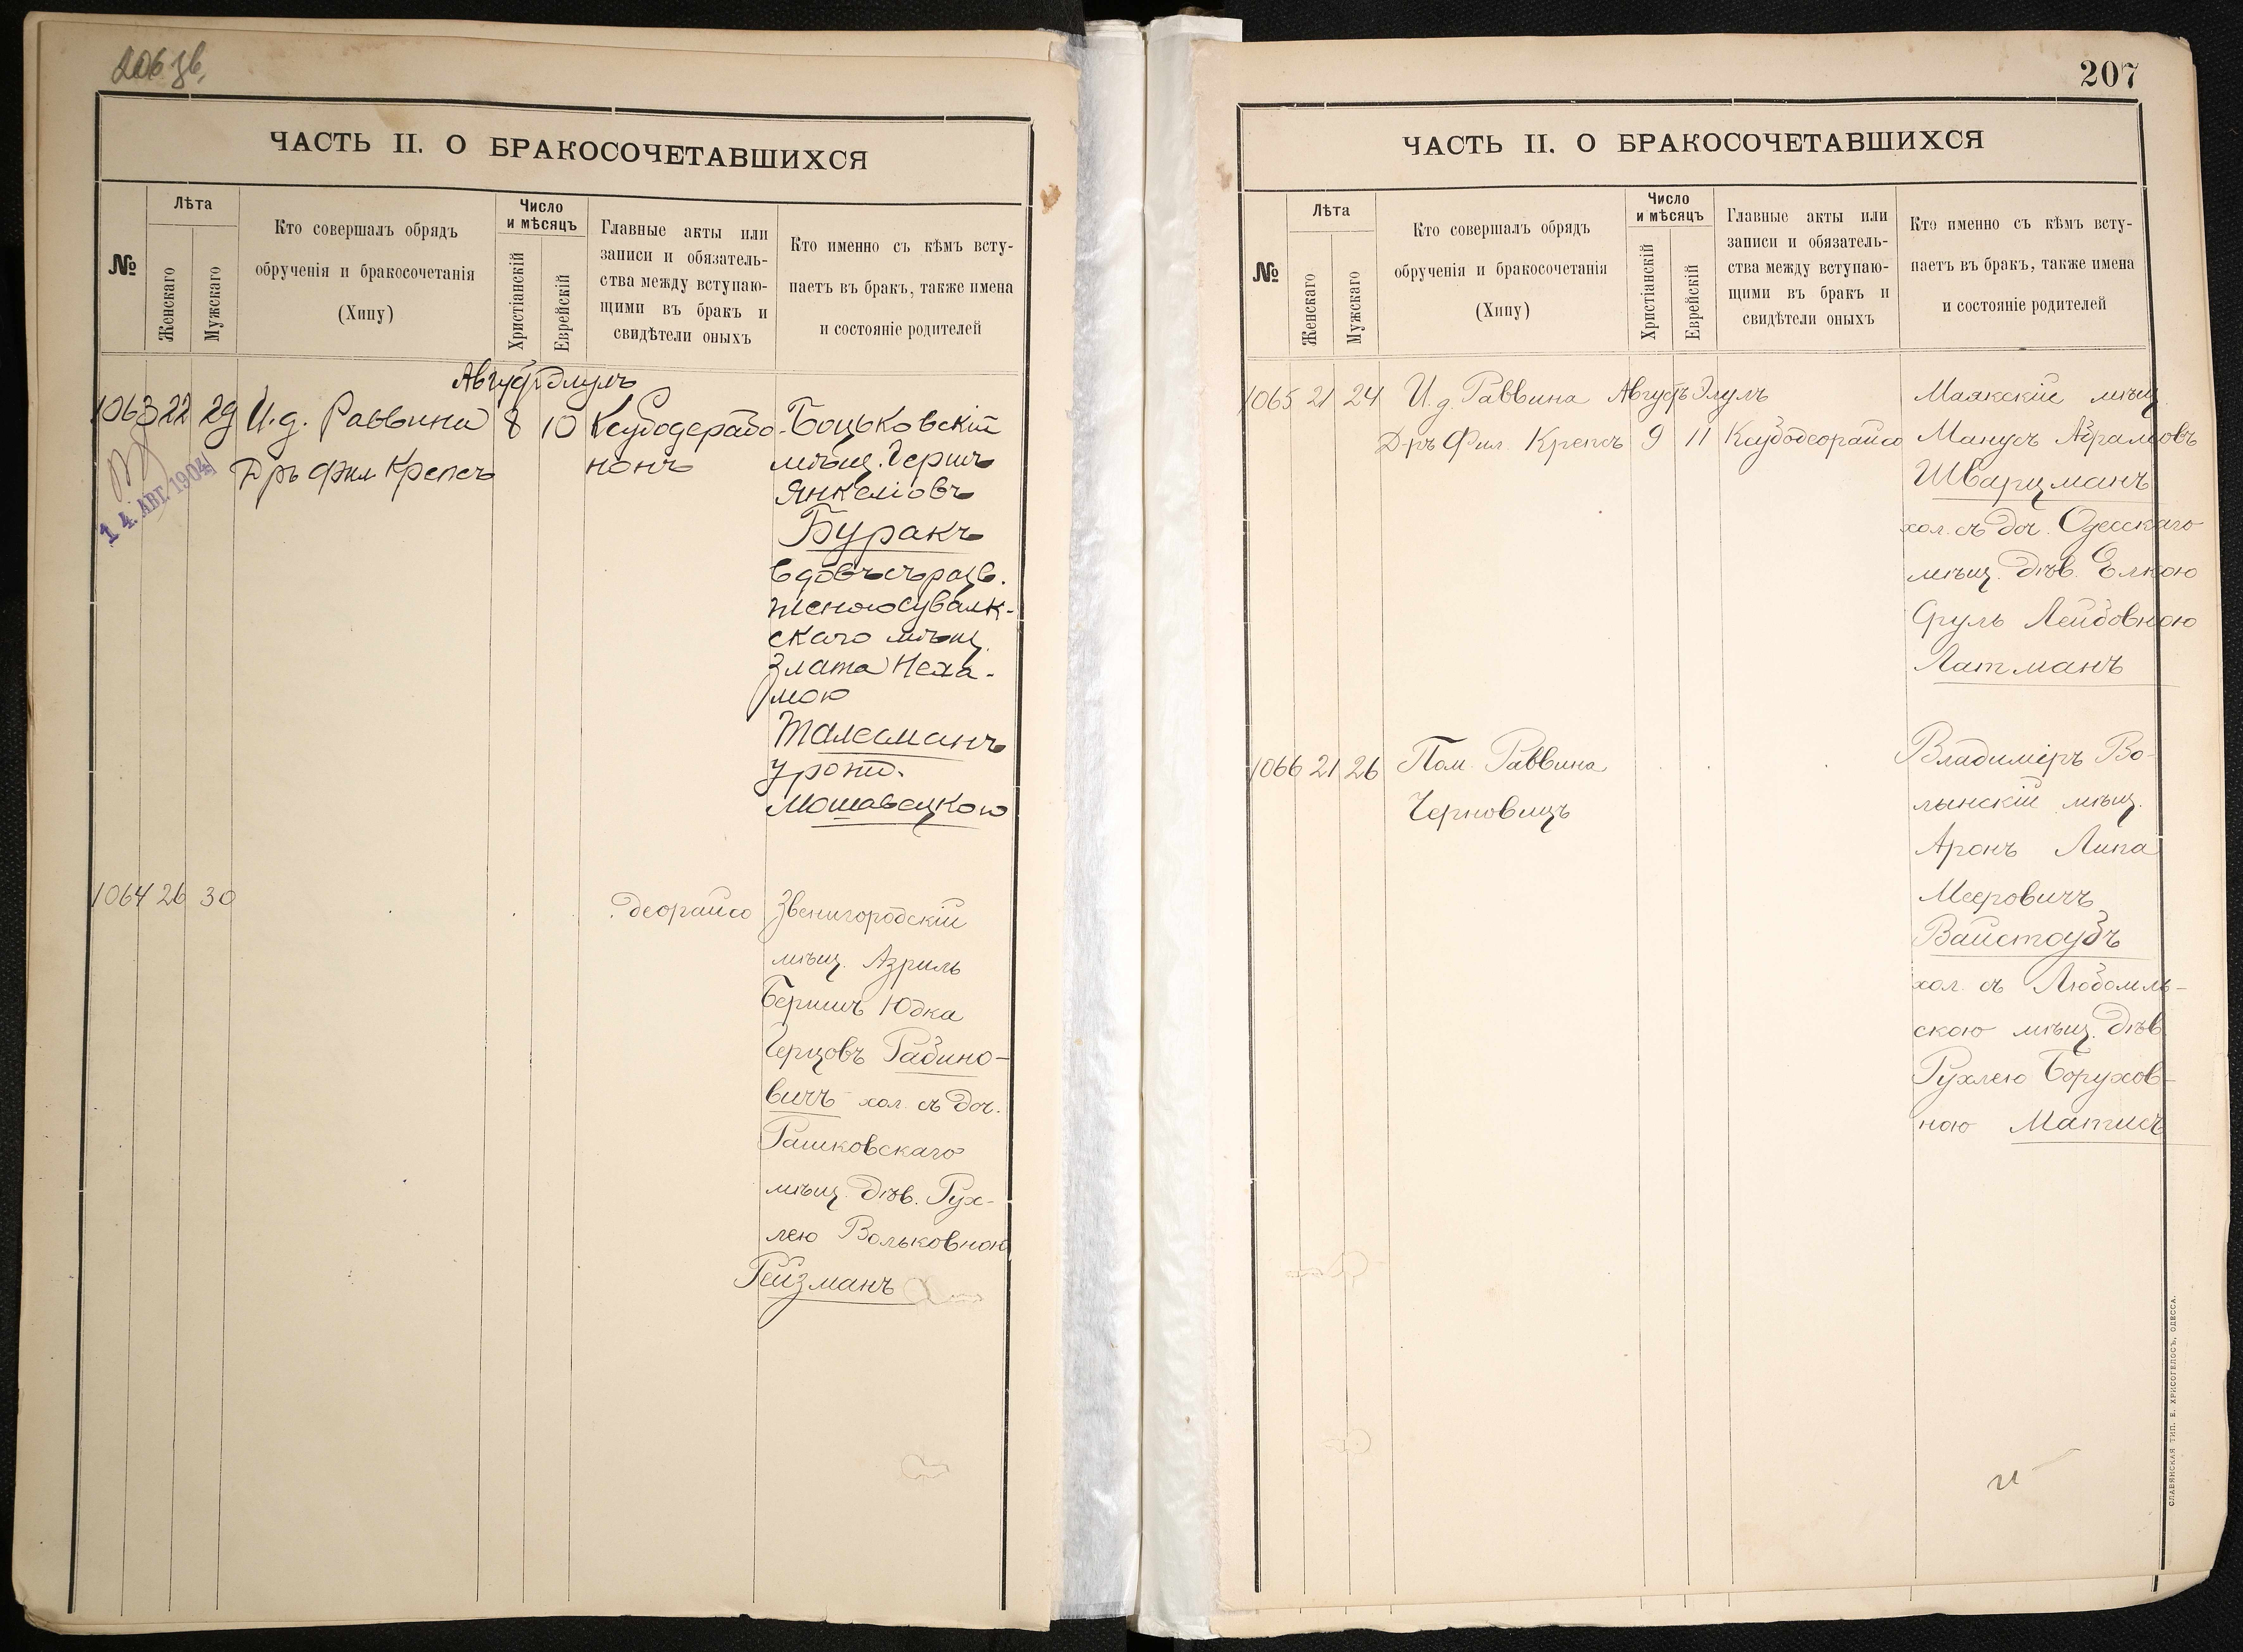 206 зв.
ЧАСТЬ II. О БРАКОСОЧЕТАВШИХСЯ
№
Лѣта
Женскаго
Мужскаго
Кто совершалъ обрядъ
обрученія и бракосочетанія
(Хипу)
Число
и мѣсяцъ
Христіанскій
Еврейскій
Главные акты или
записи и обязатель-
ства между вступаю-
щими въ бракъ и
свидѣтели оныхъ
Кто именно съ кѣмъ всту-
паетъ въ бракъ, также имена
и состояніе родителей
Августъ Элулъ
1063 22 29 И.д. Раввина 8 10 Ксубодерабо- Боцьковскій
Д-ръ Фил Крепсъ нонъ мѣщ. Гершъ
14. АВГ. 1904
Янкеліовъ
Буракъ
вдовъ съ разв.
женою Сувалк-
скаго мѣщ.
Злата Неха-
мою
Талесманъ
урожд.
Мошавецкою
1064 26 30 деорайсо Звенигородскій
мѣщ. Азриль
Бершъ Юдка
Герцовъ Рабино-
вичъ хол. съ доч.
Рашковскаго
мѣщ. дѣв. Рух-
лею Вольковною
Рейзманъ
207
ЧАСТЬ II. О БРАКОСОЧЕТАВШИХСЯ
№
Лѣта
Женскаго
Мужскаго
Кто совершалъ обрядъ
обрученія и бракосочетанія
(Хипу)
Число
и мѣсяцъ
Христіанскій
Еврейскій
Главные акты или
записи и обязатель-
ства между вступаю-
щими въ бракъ и
свидѣтели оныхъ
Кто именно съ кѣмъ всту-
паетъ въ бракъ, также имена
и состояніе родителей
1065 21 24 И.д. Раввина Августъ Элулъ Маякскій мѣщ.
Д-ръ Фил. Крепсъ 9 11 Ксубодеорайсо Манусъ Абрамовъ
Шварцманъ
хол. съ доч. Одесскаго
мѣщ. дѣв. Елкою
Фруль Лейбовною
Латманъ
1066 21 26 Пом. Раввина Владиміръ Во-
Черновицъ лынскій мѣщ.
Аронъ Липа
Мееровичъ
Вайстаубъ
хол. съ Любомль-
скою мѣщ. дѣв.
Рухлею Борухов-
ною Матисъ
СЛАВЯНСКАЯ ТИП. Е. ХРИСОГЕЛОСЪ, ОДЕССА.